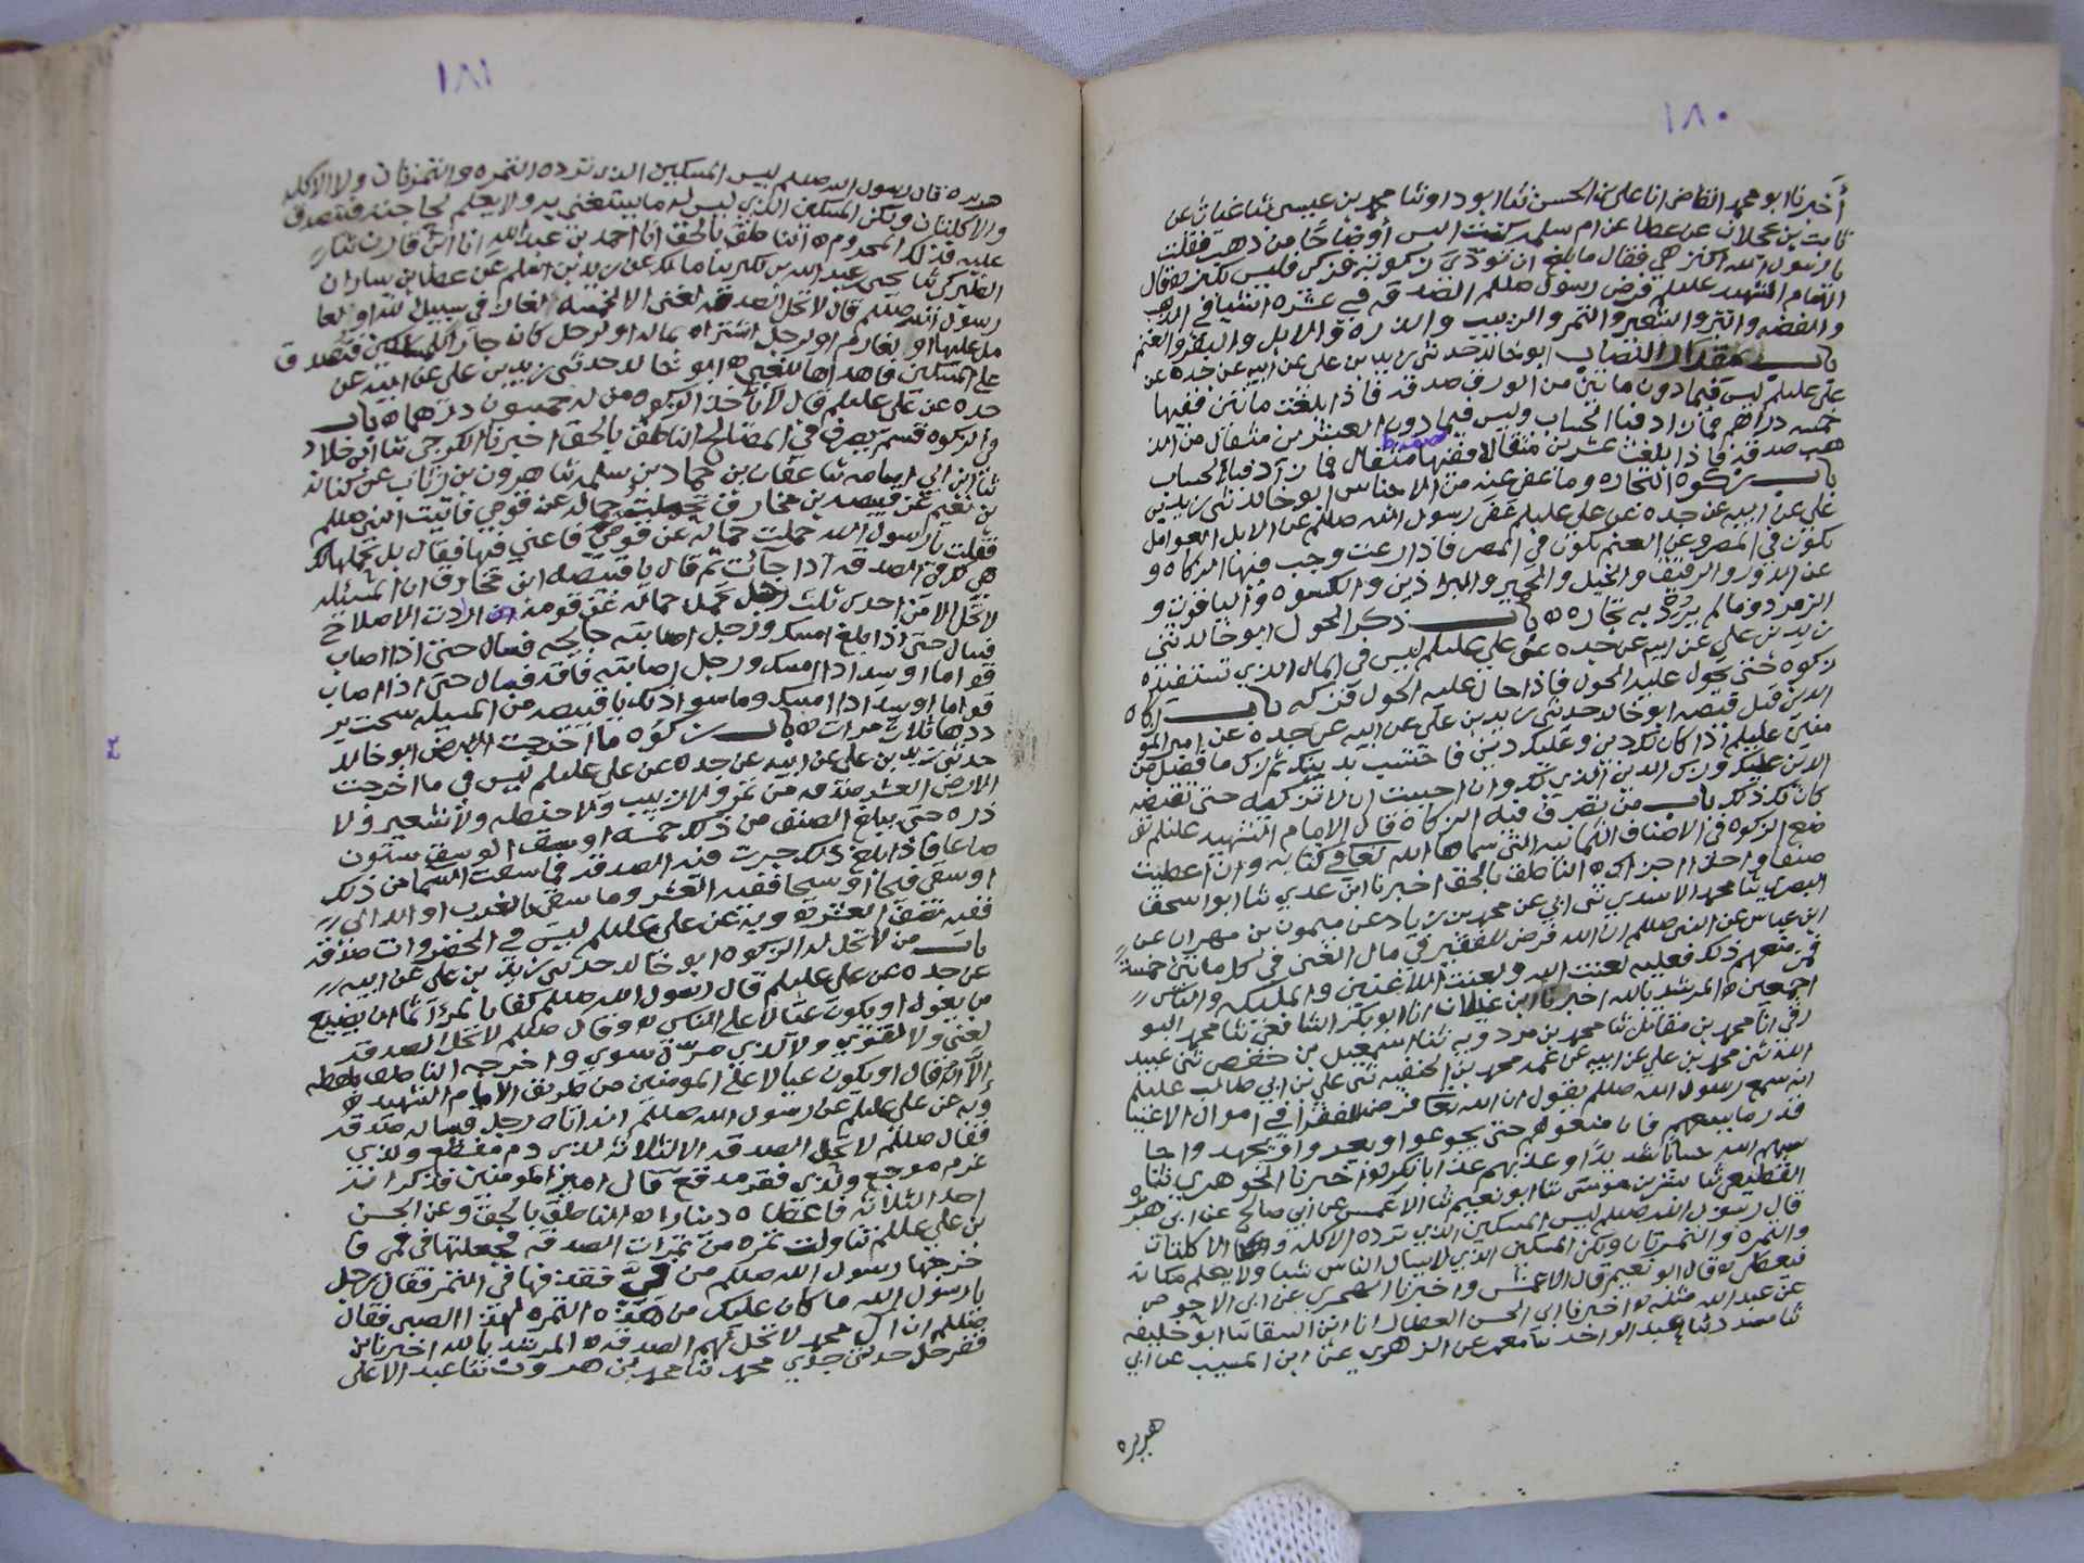 ١٨٠
أخبرنا ابو محمد القاضي انا علي بن الحسن ثنا ابو داود ثنا محمد بن عيسى ثنا عتاب عن
ثابت بن عجلان عن عطا عن ام سلمه كنت البس أوضاحًا من ذهب فقلت
يا رسول الله اكنز هي فقال ما بلغ ان تؤدي زكوته فزكي فليس بكنز وقال
الامام الشهيد عليلم فرض رسول صللم الصدقه في عشره اشيا في الذهب
والفضه والبر والشعير والتمر والزبيب والذره والابل والبقر والغنم
باب مقدار النصاب ابو خالد حدثني زيد بن علي عن ابيه عن جده عن
علي عليلم ليس فيما دون مايتين من الورق صدقه فاذا بلغت مائتين ففيها
خمسه دراهم فما زاد فبالحساب وليس فيما دون العشرين مثقال من الذ
هب صدقه فاذا بلغت عشرين مثقالا ففيها نصف مثقال فما زاد فبالحساب
باب زكوه التجاره وما عفي عنه من الاجناس ابو خالد ثني زيد بن
علي عن ابيه عن جده عن علي عليلم عفى رسول الله صللم عن الابل العوامل
تكون في المصر وعن الغنم تكون في المصر فاذا رعت وجب فيها الزكاه و
عن الدور والرقيق والخيل والحمير والبراذين والكسوه والياقوت و
الزمرد وما لم يرد به تجاره ه باب ذكر الحول ابو خالد ثني
زيد بن علي عن ابيه عن جده عن علي عليلم ليس في المال الذي تستفيده
زكوه حتى يحول عليه الحول فاذا حال عليه الحول فزكه باب زكاه
الدين قبل قبضه ابو خالد حدثني زيد بن علي عن ابيه عن جده عن امير المو
منين عليلم اذا كان لك دين وعليك دين فاحتسب بدينك ثم زك ما فضل من
الدين عليك وزك الدين الذي لك وان احببت ان لا تزكيه حتى تقبضه
كان لك ذلك باب من تصرف فيه الزكاه قال الامام الشهيد عليلم تو
ضع الزكوه في الاصناف الثمانيه التي سماها الله تعا في كتابه وان اعطيت
صنفا واحدا اجزاك ه الناطق بالحق اخبرنا ابن عدي ثنا ابو اسحق
البصري ثنا محمد الاسدي ثني ابي عن محمد بن زياد عن ميمون بن مهران عن
ابن عباس عن النبي صللم ان الله فرض للفقير في مال الغني في كل مايتين خمسة
فمن منعهم ذلك فعليه لعنت الله ولعنت اللاعنين والمليكه والناس
اجمعين ه المرشد بالله اخبرنا ابن غيلان انا ابو بكر الشافعي ثنا محمد البو
رقي انا محمد بن مقاتل ثنا محمد بن مردويه ثنا اسمعيل بن حفص ثني عبيد
الله ثني محمد بن علي عن ابيه عن عمه محمد بن الحنفيه ثني علي بن ابي طالب عليلم
انه سمع رسول الله صللم يقول ان الله تعا فرض للفقرا في اموال الاغنيا
قدر ما يسعهم فان منعوهم حتى يجوعوا او يعروا او يجهدوا حا
سبهم الله حسابا شديدًا وعذبهم عذابا نكرا اخبرنا الجوهري ثنا
القطيعي ثنا بشر بن موسى ثنا ابو نعيم ثنا الاعمش عن ابي صالح عن ابي هريره
قال رسول الله صللم ليس المسكين الذي ترده الاكله والاكلتان
والتمره والتمرتان ولكن المسكين الذي لا يسال الناس شيا ولا يعلم مكانه
فيعطى ه قال ابو نعيم قال الاعمش واخبرنا الهجري عن ابي الاحوص
عن عبد الله مثله ه اخبرنا ابي الحسن العطار انا ابن السقا ثنا ابو خليفه
ثنا مسدد ثنا عبد الواحد ثنا معمر عن الزهري عن ابن المسيب عن ابي
هريره
١٨١
هريره قال رسول الله صللم ليس المسكين الذي ترده التمره والتمرتان ولا الاكله
والاكلتان ولكن المسكين الذي ليس له ما يستغني به ولا يعلم لحاجته فيتصدق
عليه فذلك المحروم ه الناطق بالحق انا احمد بن عبد الله انا ابن قارن ثنا
الطبركي ثنا يحيى بن عبد الله بن بكير ثنا مالك عن زيد بن اسلم عن عطا بن يسار ان
رسول الله صللم قال لا تحل الصدقه لغني الا لخمسه لغاز في سبيل الله او لعا
مل عليها او لغارم او لرجل اشتراه بماله او لرجل كان جار المسكين فتصدق
على المسكين فاهداها للغني ه ابو خالد حدثني زيد بن علي عن ابيه عن
جده عن علي عليلم قال لا ياخذ الزكوه من له خمسون درهما ه باب
والزكوه قسم يصرف في المصالح الناطق بالحق اخبرنا الكرجي ثنا ابن خلاد
ثنا ابن ابي اسامه ثنا عفان بن حماد بن سلمه ثنا هرون بن رياب عن كنانه
بن نعيم عن قبيصه بن مخارق تحملت حماله عن قومي فاتيت النبي صللم
فقلت يا رسول الله حملت حماله عن قومي فاعني فيها فقال بل نحملها لك
هي لك في الصدقه اذا جائت ثم قال يا قبيصه ابن مخارق ان المسئله
لا تحل الا من احدى ثلث رجل تحمل حماله عن قومه اراد الاصلاح
فيسال حتى اذا بلغ امسك ورجل اصابته جايحه فسال حتى اذا اصاب
قواما او سدادا امسك ورجل اصابته فاقه فسال حتى اذا اصاب
قواما او سدادا امسك وما سوا ذلك يا قبيصه من المسيله سحت ير
ددها ثلاث مرات ه باب زكوه ما اخرجت الارض ابو خالد
حدثني زيد بن علي عن ابيه عن جده عن علي عليلم ليس في ما اخرجت
الارض العشر صدقه من تمر ولا زبيب ولا حنطه ولا شعير ولا
ذره حتى يبلغ الصنف من ذلك خمسه اوسق الوسق ستون
صاعا فاذا بلغ ذلك جرت فيه الصدقه فما سقت السما من ذلك
او سقي فيحا او سيحا ففيه العشر وما سقي بالغرب او الدالي
ففيه نصف العشر ه وبه عن علي عليلم ليس في الخضروات صدقه
باب من لا تحل له الزكوه ابو خالد حدثني زيد بن علي عن ابيه
عن جده عن علي عليلم قال رسول الله صللم كفا بالمرء آثما ان يضيع
من يعول او يكون عيالا على الناس ه وقال صللم لا تحل الصدقه
لغني ولا لقوي ولا لذي مرة سوي واخرجه الناطق بلفظه
إلاّ انه قال او يكون عيالا على المومنين من طريق الامام الشهيد ه
وبه عن علي عليلم عن رسول الله صللم انه اتاه رجل فساله صدقه
فقال صللم لا تحل الصدقه الا لثلاثه لذي دم مفظع ولذي
غرم موجع ولذي فقر مدقع قال امير المومنين فذكر انه
احد الثلاثه فاعطاه دينارا ه الناطق بالحق وعن الحسن
بن علي عللم تناولت تمره من تمرات الصدقه فجعلتها في فمي فا
خرجها رسول الله صللم من فيَّ فقذفها في التمر فقال رجل
يا رسول الله ما كان عليك من هذه التمره لهذا الصبي فقال
صللم ان ال محمد لا تحل لهم الصدقه ه المرشد بالله اخبرنا بن
فقر حل حدثني جدي محمد ثنا محمد بن هرون ثنا عبد الاعلى